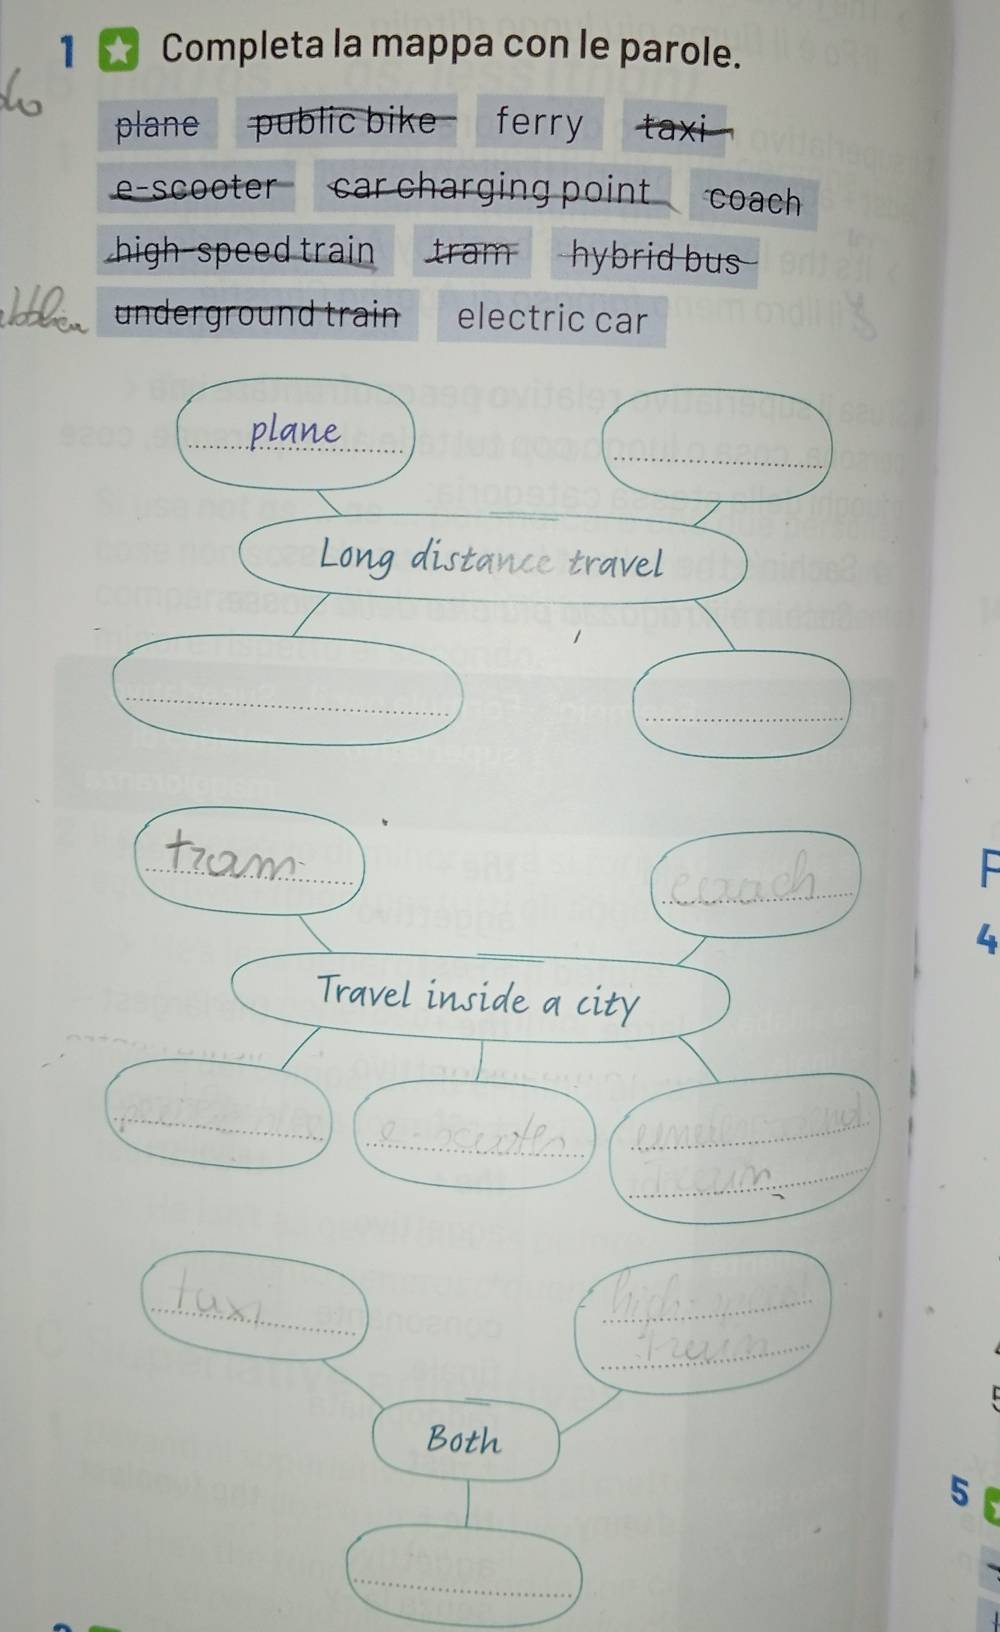 1 Completa la mappa con le parole.
plane public bike ferry taxi
e-scooter car charging point coach
high-speed train tram hybrid bus
underground train electric car
plane
Long distance travel
tram
coach
Travel inside a city
e-scooter
underground
train
taxi
high-speed
train
Both
4
5